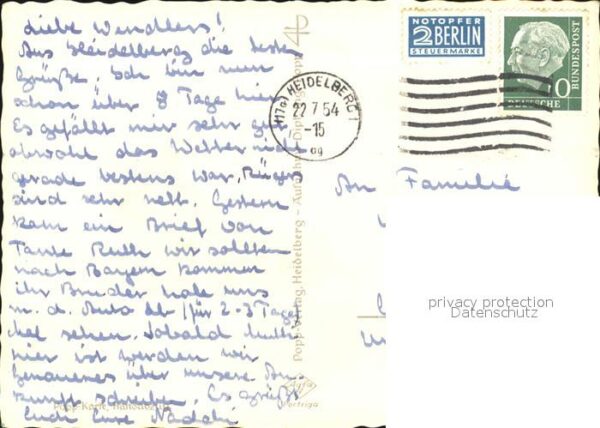 Liebe Wendlers!
Aus Heidelberg die besten
Grüße. Ich bin nun
schon über 8 Tage hier
Es gefällt mir sehr gut
obwohl das Wetter nicht
gerade bestens war,
sind sehr nett. Gestern
kam ein Brief von
Tante Ruth wir sollten
nach Bayern kommen
ihr Bruder hole uns
m. d. Auto ab (für 2-3 Tage)
mal sehen. Sobald
hier ist werden wir
Genaueres über unsere An-
kunft schreiben. Es grüßt
Euch Eure
An Familie
NOTOPFER
2 BERLIN
STEUERMARKE
DEUTSCHE
BUNDESPOST
10
(17a) HEIDELBERG 1
22.7.54
-15
ag
Popp-Verlag, Heidelberg
Agfa
Portriga
Popp-Karte,
privacy protection
Datenschutz